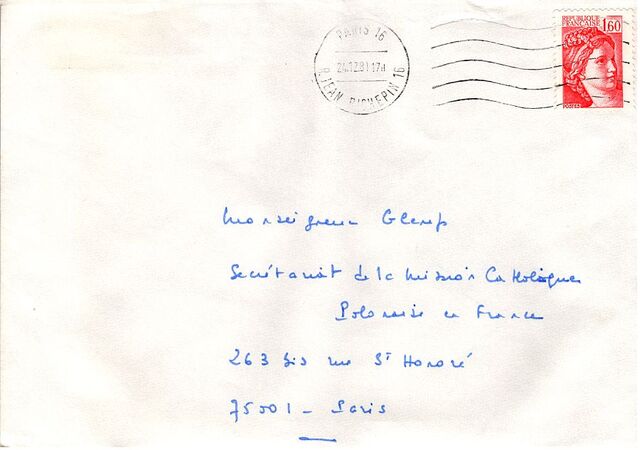 PARIS 16
24.12.81 17H
R. JEAN RICHEPIN 16
REPUBLIQUE
FRANCAISE
1,60
POSTES
Monseigneur Glemp
Secrétariat de la Mission Catholique
Polonaise en France
263 bis rue St Honoré
75001 - Paris